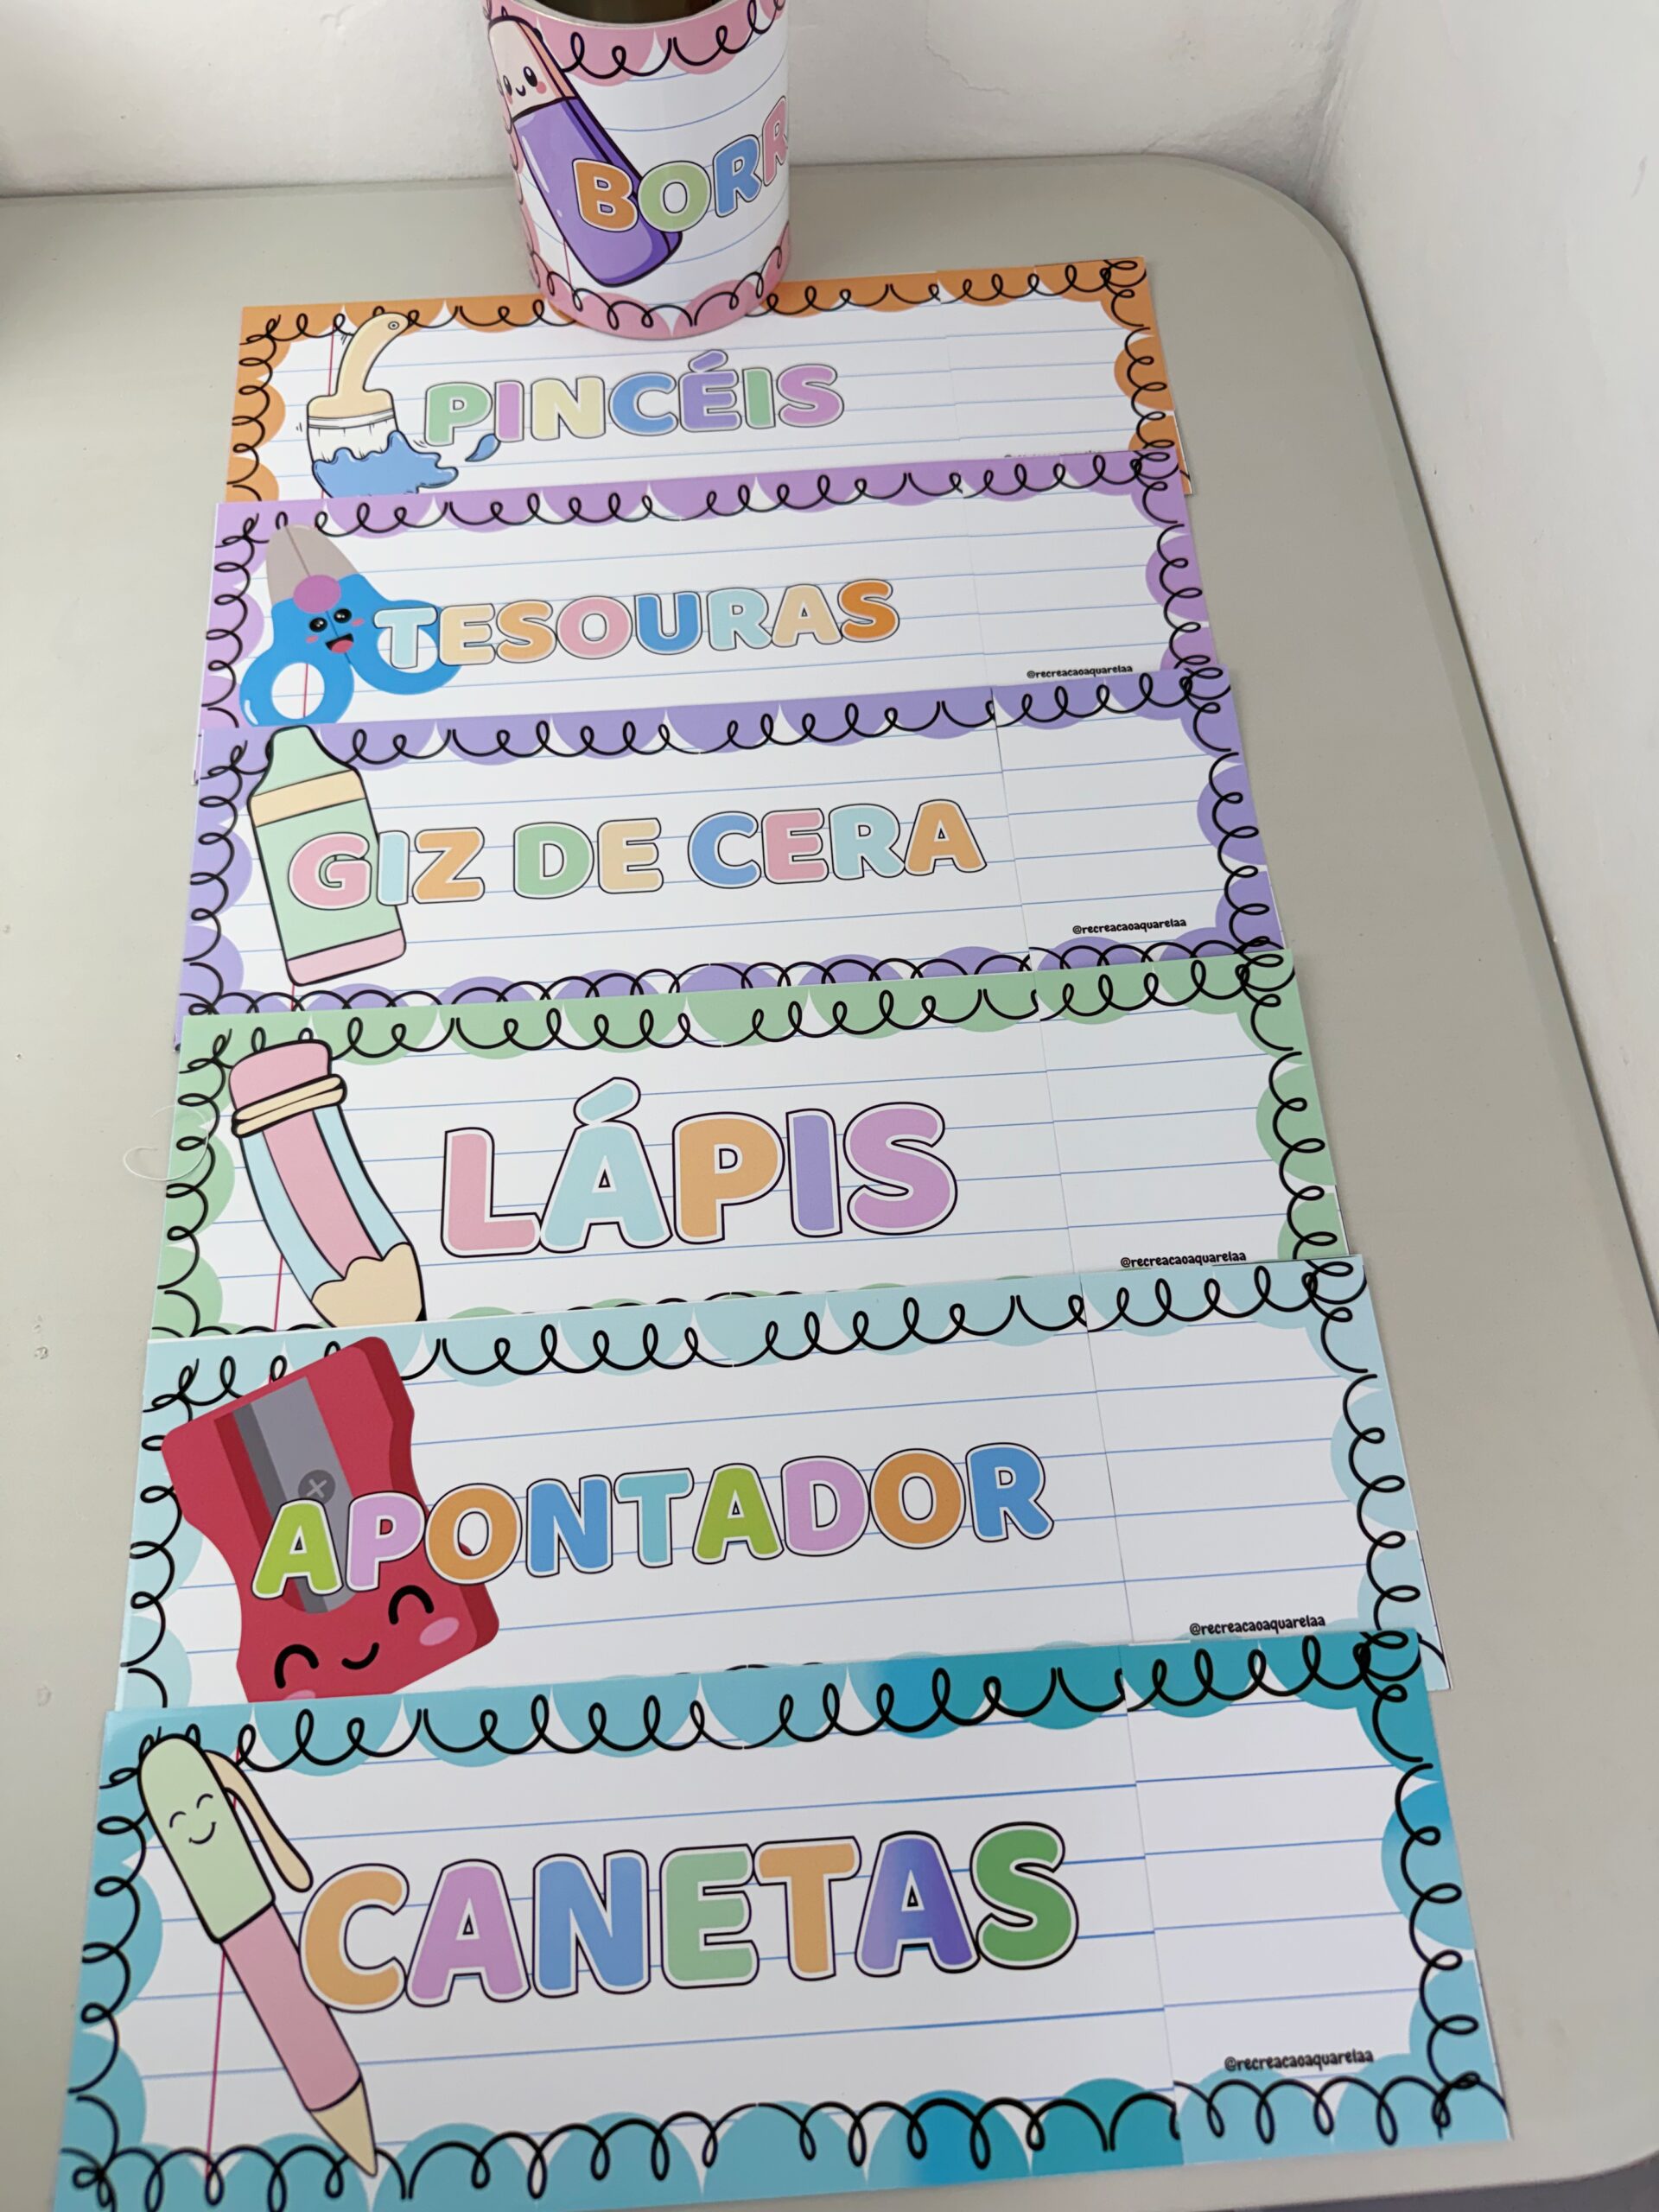 BORR
PINCÉIS
TESOURAS
@recreacaoaquarelaa
GIZ DE CERA
@recreacaoaquarelaa
LÁPIS
@recreacaoaquarelaa
APONTADOR
@recreacaoaquarelaa
CANETAS
@recreacaoaquarelaa